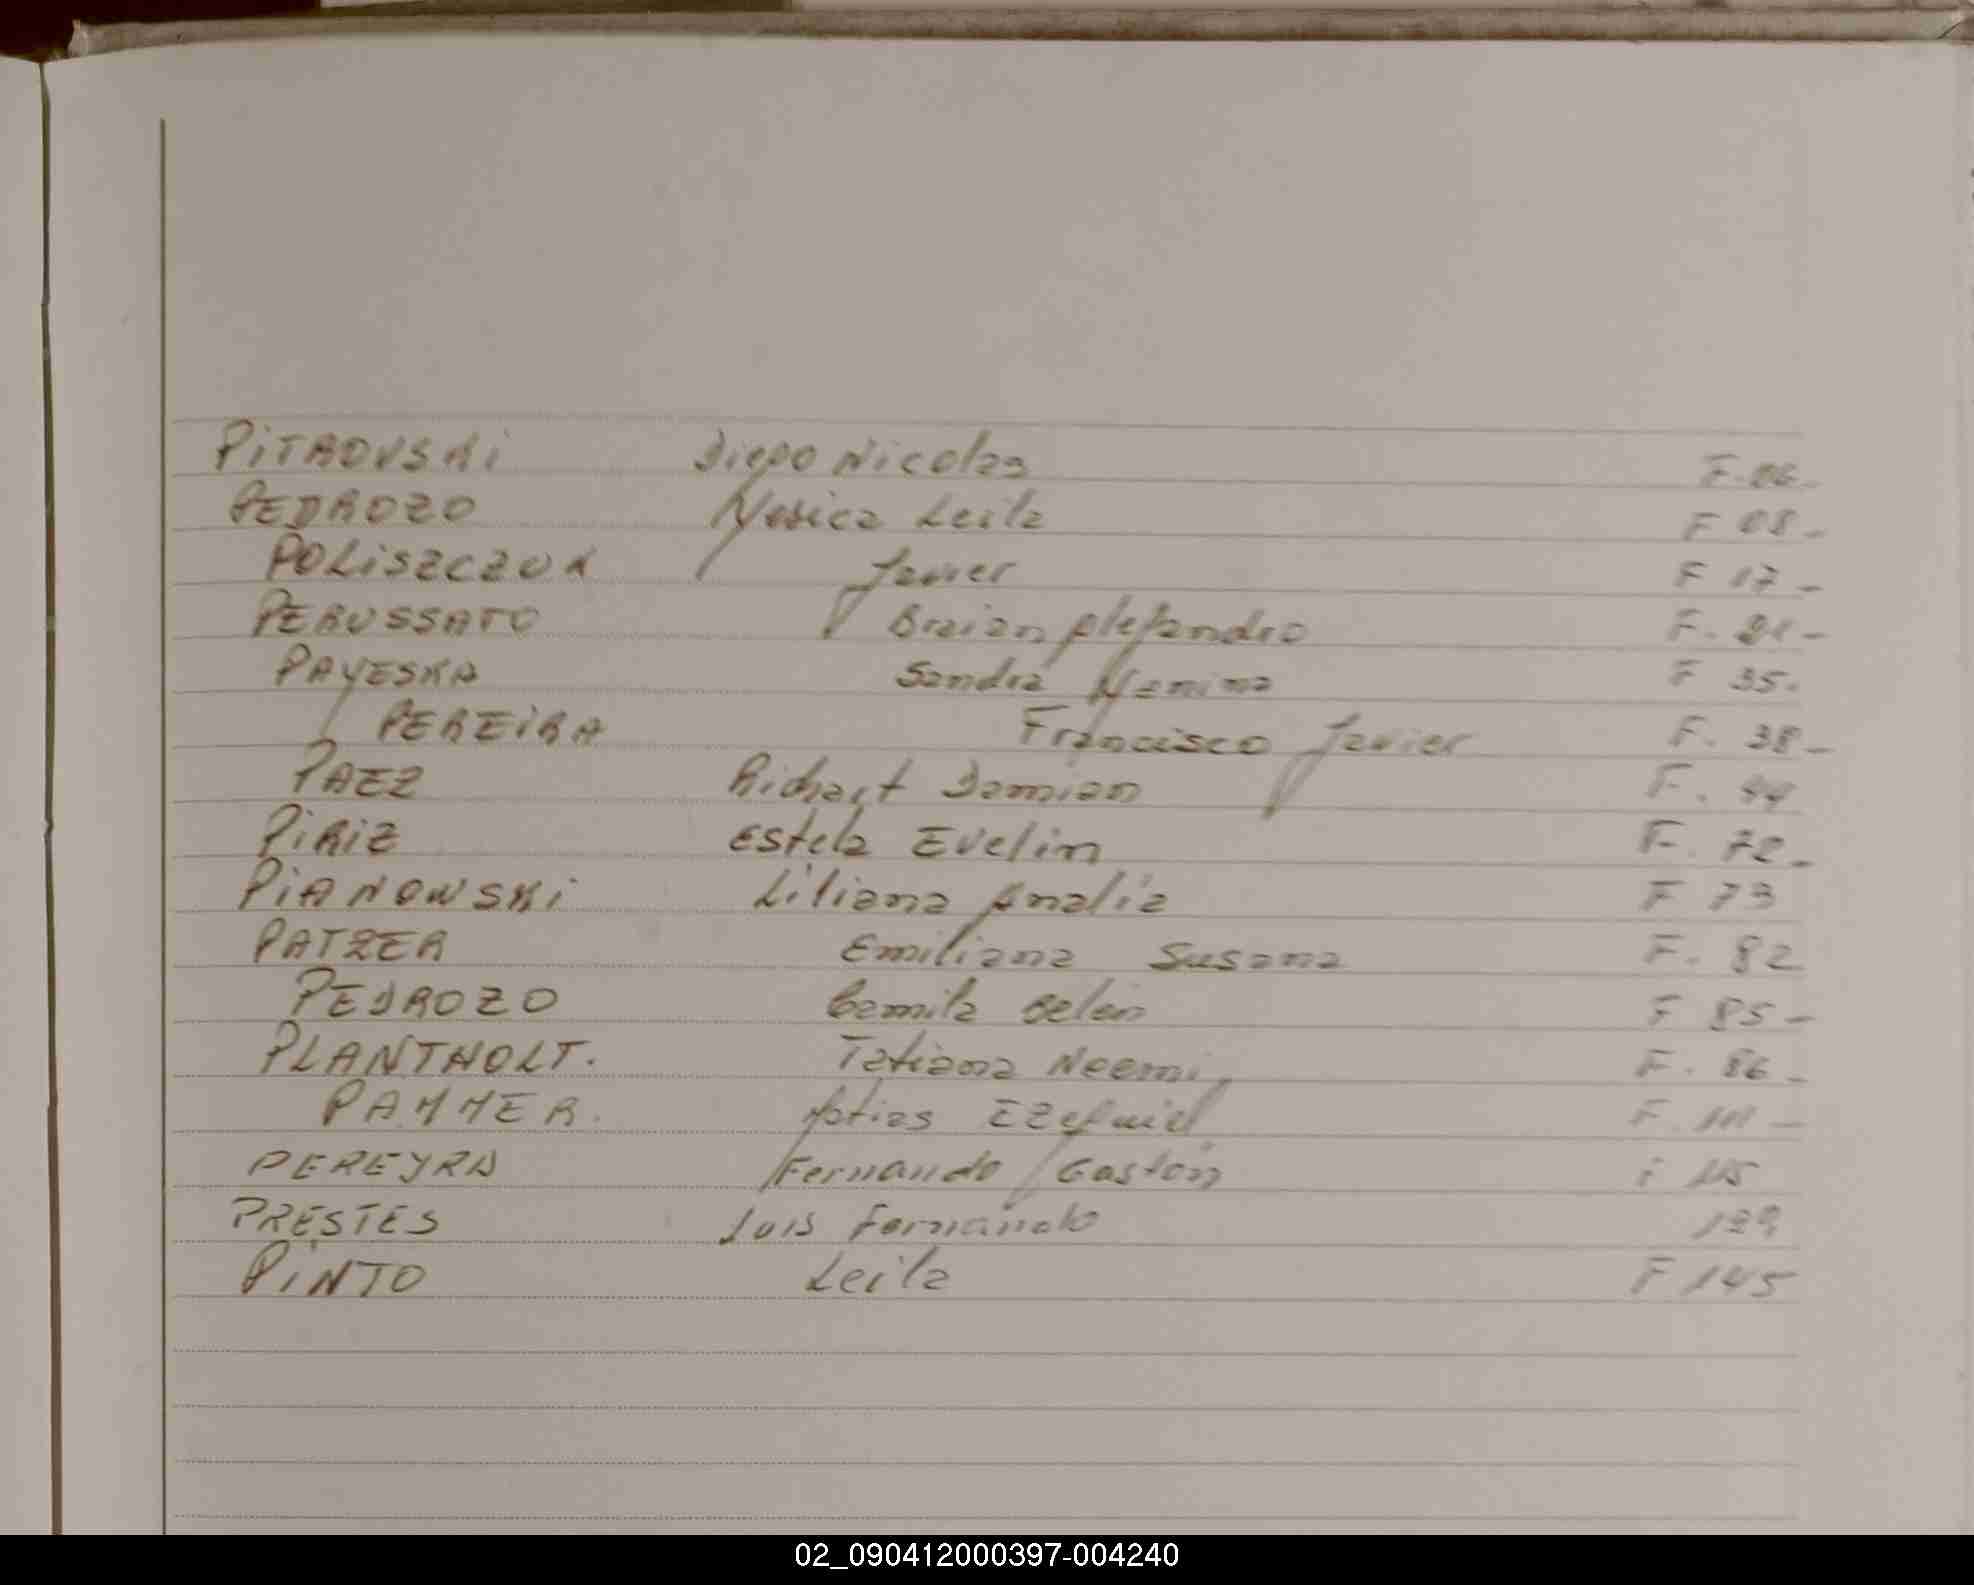 PiTROVSKi Diego Nicolas F. 06-
PEDROZO Yesica Leila F 08-
POLiSZCZUK Javier F 17-
PERUSSATO Braian Alejandro F. 21-
PAYESKA Sandra Yanina F 35.
PEREiRA Francisco Javier F. 38-
PAEZ Richart Damian F. 44
PiRiZ Estela Evelin F. 72-
PiANOWSKi Liliana Analia F 73
PATZER Emiliana Susana F. 82
PEDROZO Camila Belen F 85-
PLANTHOLT. Tatiana Noemi F. 86-
PAMMER. Matias Ezequiel F. 111-
PEREYRA Fernando Gastón F 115
PRESTES Luis Fernando 129
PiNTO Leila F 145
02_090412000397-004240